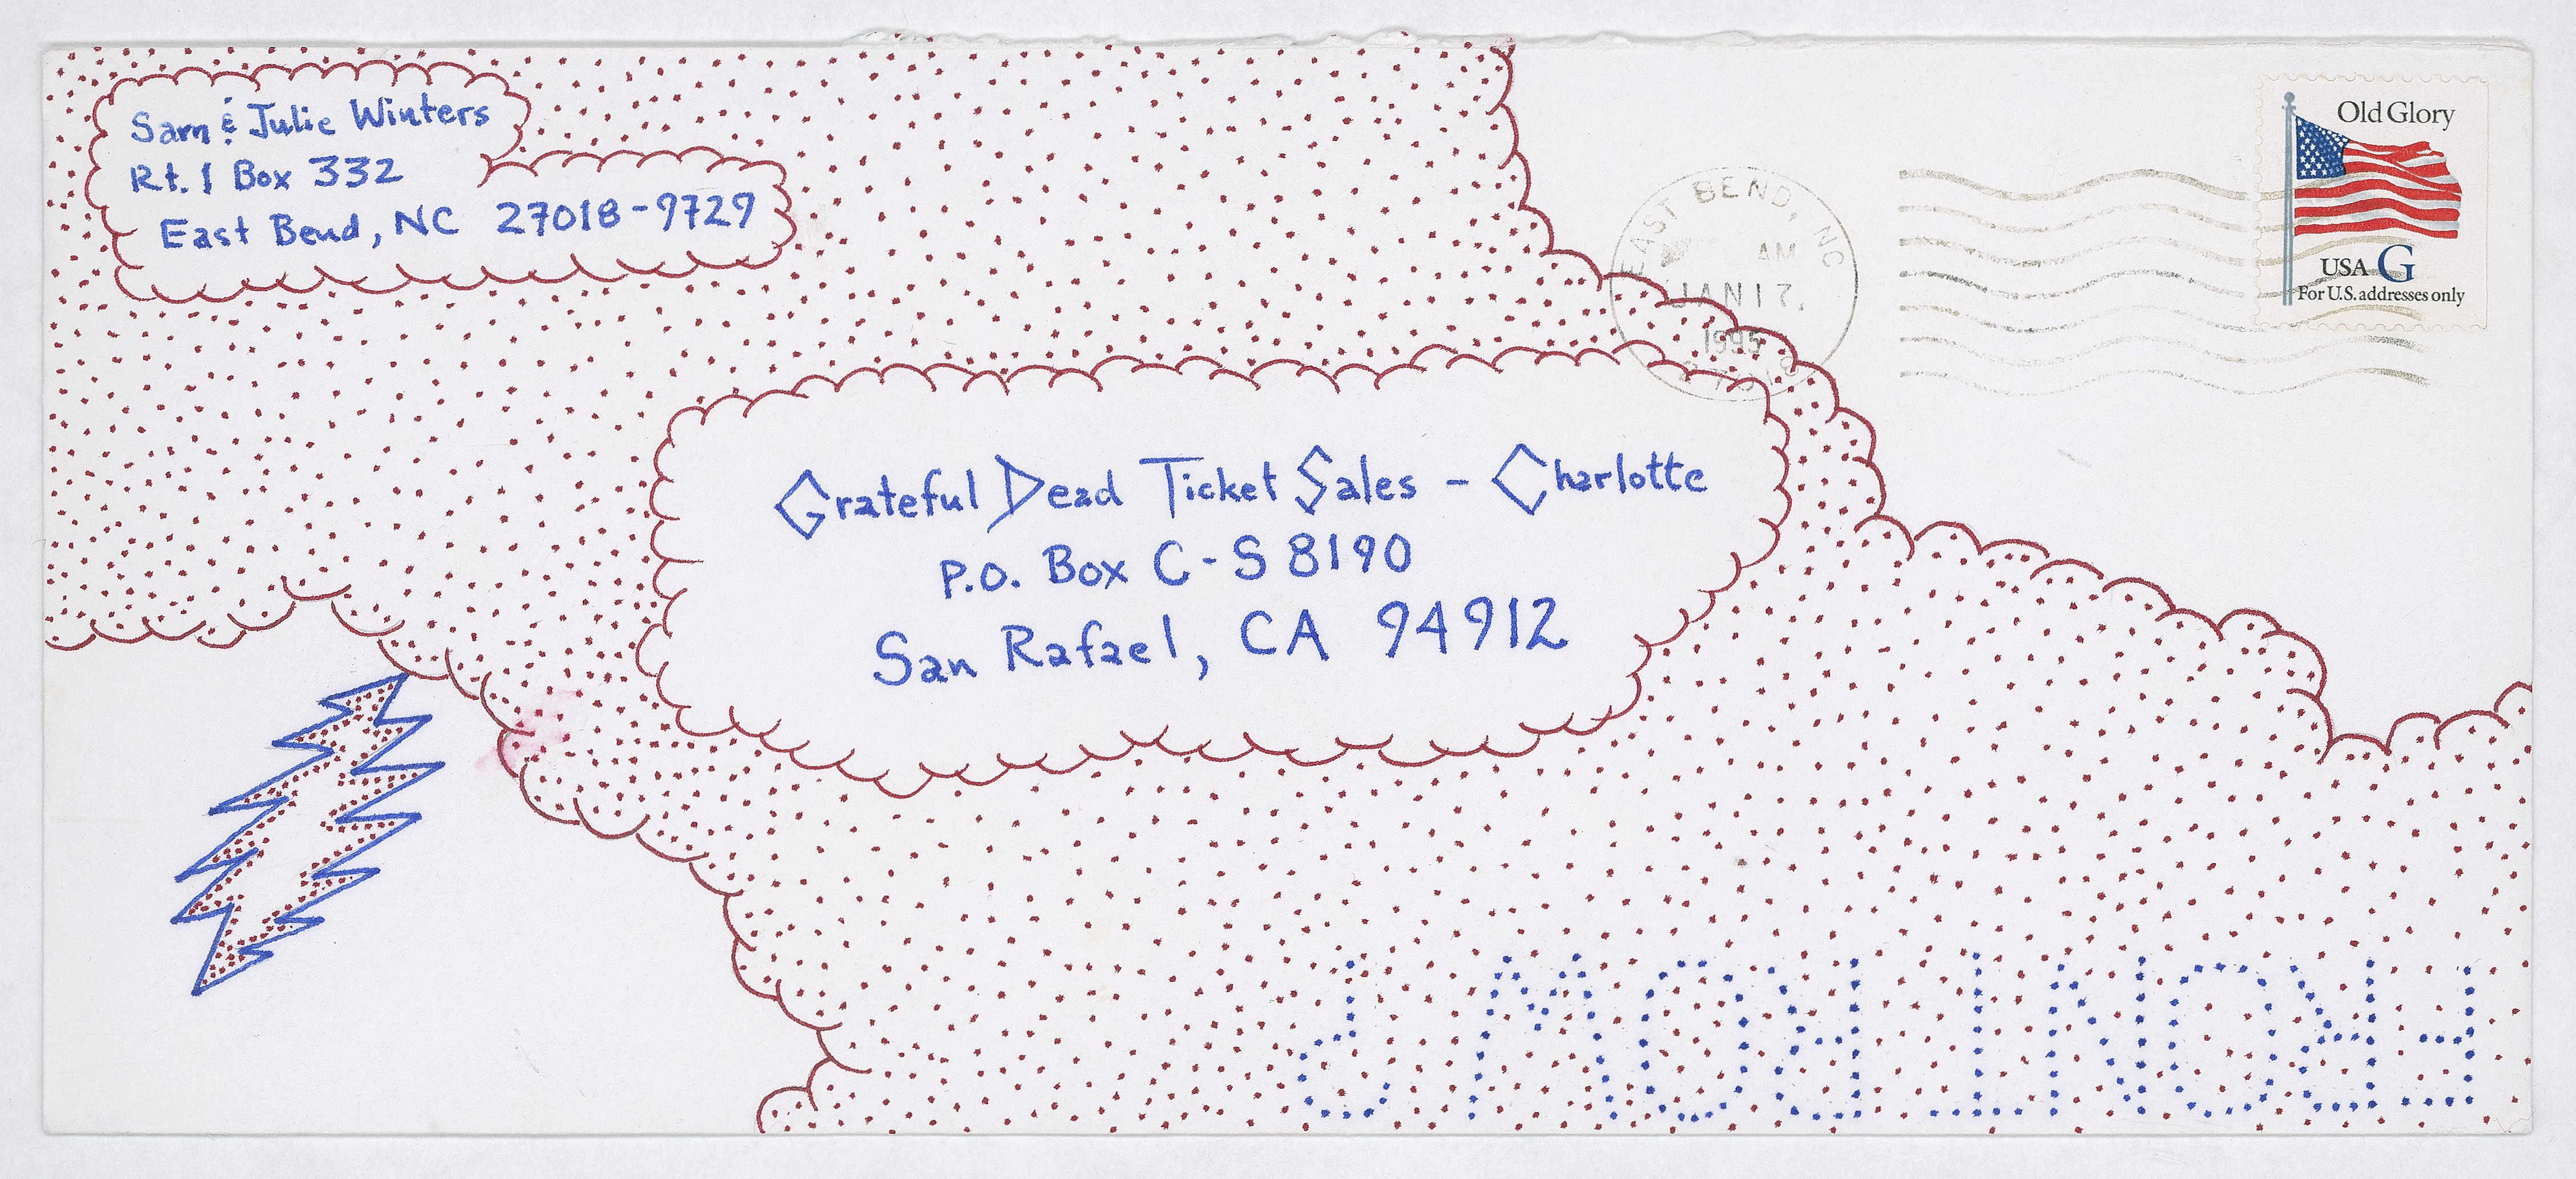 Sam & Julie Winters
Rt. 1 Box 332
East Bend, NC 27018-9729
Old Glory
USA G
For U.S. addresses only
EAST BEND, NC
AM
JAN 17,
1995
Grateful Dead Ticket Sales - Charlotte
P.O. Box C-S 8190
San Rafael, CA 94912